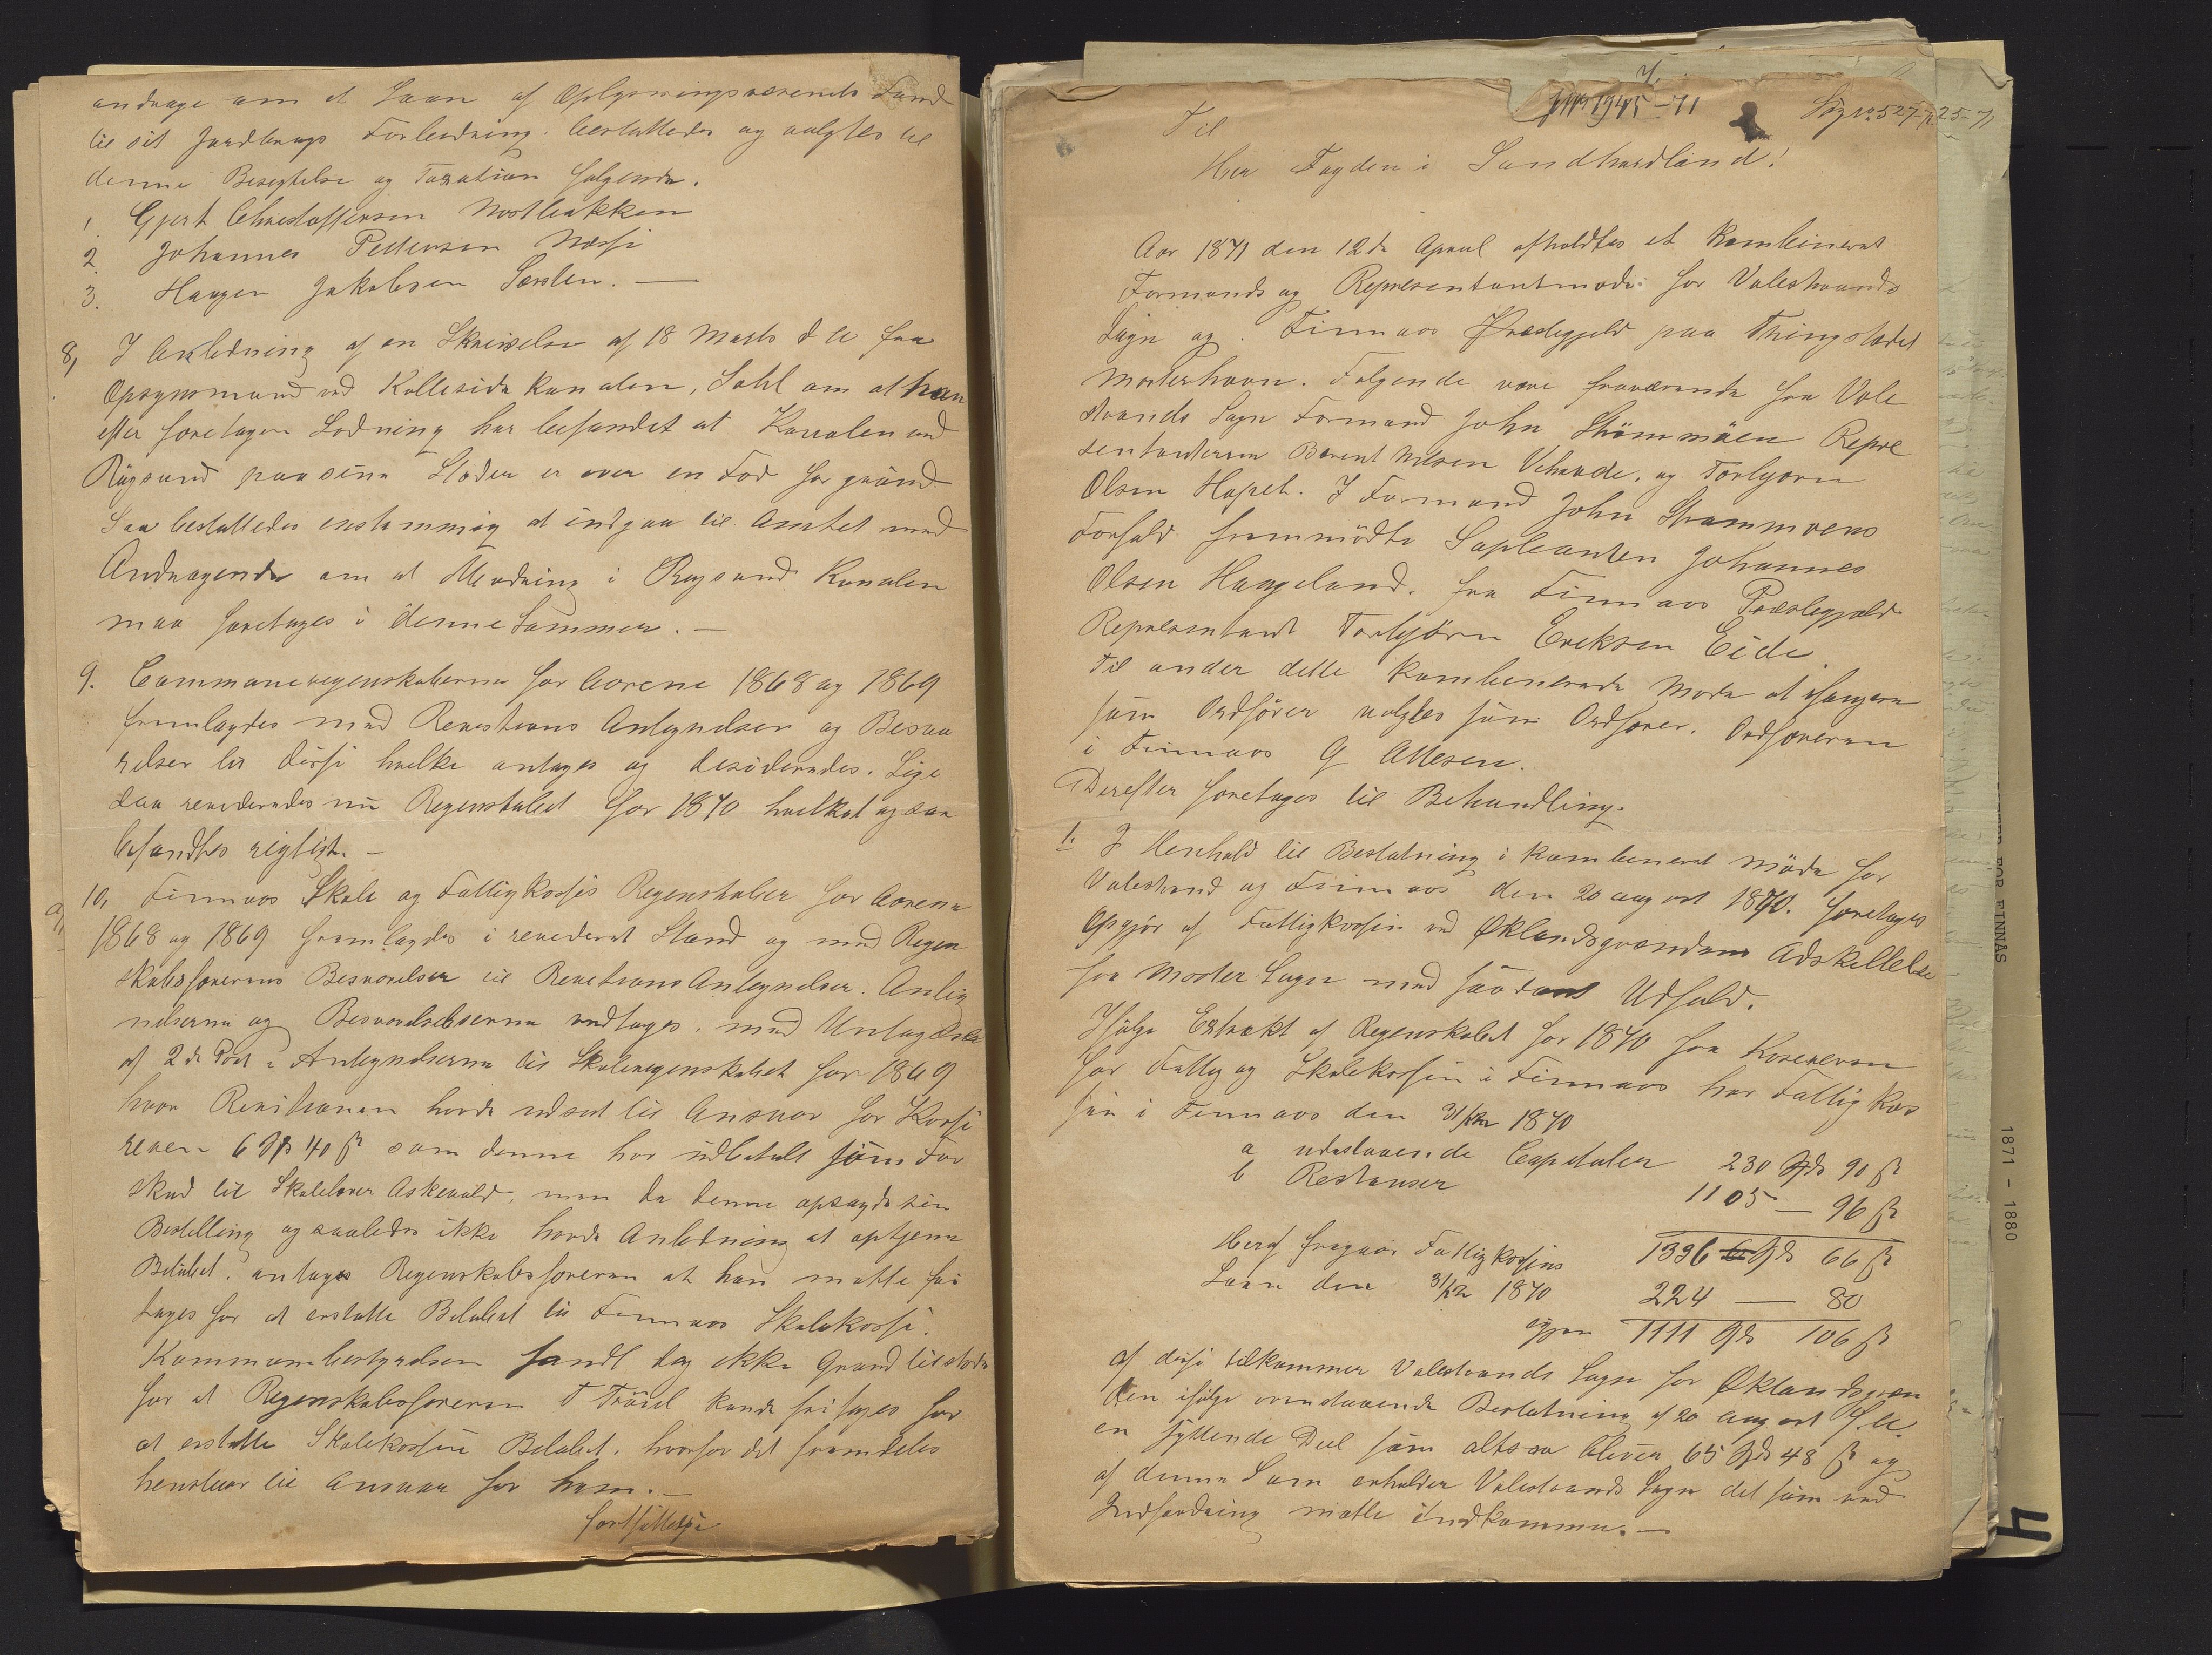 andrage om et Laan af Oplysningsvæsenets Fond
til sit Jordbrugs Forbedring. besluttedes og valgtes til
denne Besigtelse og Taxation følgende.
1. Gjert Christoffersen Nordbakken
2. Johannes Pettersen Næsse
3. Haagen Jakobsen Særsten. —
8, I Anledning af en Skrivelse af 18 Marts d A fra
Opsynsmand ved Kulleseids Kanalen, Dahl om at han
efter foretagen Lodning har befundet at Kanalen ved
Røgsund paa sine Steder er over en Fod for grund
Saa besluttedes enstemmig at indgaa til Amtet med
Andragende om at Mudring i Røgsund Kanalen
maa foretages i denne Sommer. —
9. Communeregnskaberne for Aarene 1868 og 1869
fremlagdes med Revisions Antegnelser og Besva
relser til disse hvilke antages og desideredes. Lige
saa revideredes nu Regnskabet for 1870 hvilket ogsaa
befandtes rigtigt. —
10, Finnaas Skole og Fattigkasses Regnskaber for Aarene
1868 og 1869 fremlagdes i revideret Stand og med Regn
skabsførerens Besvarelser til Revisions Antegnelser. Anteg
nelserne og Besvarelserne vedtages, med Undtagelse
af 2de Post i Antegnelserne til Skoleregnskabet for 1869
hvor Revisionen havde udsat til Ansvar for Kasse
reren 6 Spd 40 ß som denne har udbetalt som For
skud til Skolelærer Askevold, men da denne opsagde sin
Bestilling og saaledes ikke havde Anledning at optjene
Beløbet, antages Regnskabsføreren at han maatte fri
tages for at erstatte Beløbet til Finnaas Skolekasse.
Kommunebestyrelsen fandt dog ikke Grund tilstede
for at Regnskabsføreren T Træed kunde fritages for
at erstatte Skolekassen Beløbet, hvorfor det fremdeles
henstaar til Ansvar for ham. —
fortsættelse
J Nr 1945-71
Sag No 527 - 25-71
Til
Herr Fogden i Sondhordland!
Aar 1871 den 12te April afholdtes et kombineret
Formands og Representantmøde for Valestrands
Sogn og Finnaas Præstegjeld paa Thingstedet
Mosterhavn. Følgende vare fraværende fra Vale
strands Sogn Formand John Strømmøen Repre
sentanterne Berent Nilsen Vihovde, og Torbjørn
Olsen Hopel. I Formand John Strømmoens
Forfald fremmødte Supleanten Johannes
Olsen Haugeland. fra Finnaas Præstegjeld
Representant Torbjørn Eriksen Eide.
Til under dette kombinerede Møde at fungere
som Ordfører valgtes som Ordfører. Ordføreren
i Finnaas G Attesen.
Derefter foretages til Behandling.
1. I Henhold til Beslutning i kombineret møde for
Valestrand og Finnaas den 20 august 1870. foretages
Opgjør af Fattigkassen ved Øklandsgrændens Adskillelse
fra Moster Sogn med saadant Udfald.
Ifølge Extrakt af Regnskabet for 1870 fra Kasereren
for Fattig og Skolekassen i Finnaas har Fattig kas
sen i Finnaas den 31/12 1870
a udestaaende Capitaler 230 Spd 90 ß
b Restanser 1105 — 96 ß
1336 Spd 66 ß
Heraf fragaar Fattigkassens
Laan den 31/12 1870 224 — 80
igjen 1111 Spd 106 ß
af disse tilkommer Valestrands Sogn for Øklandsgræn
den ifølge ovenstaaende Beslutning af 20 august f. A.
en syttende Deel som altsaa bliver 65 Spd 48 ß og
af denne Sum erholder Valestrands Sogn det som ved
Indfordring maatte indkomme. —
FOR FINNÅS
1871 - 1880
4